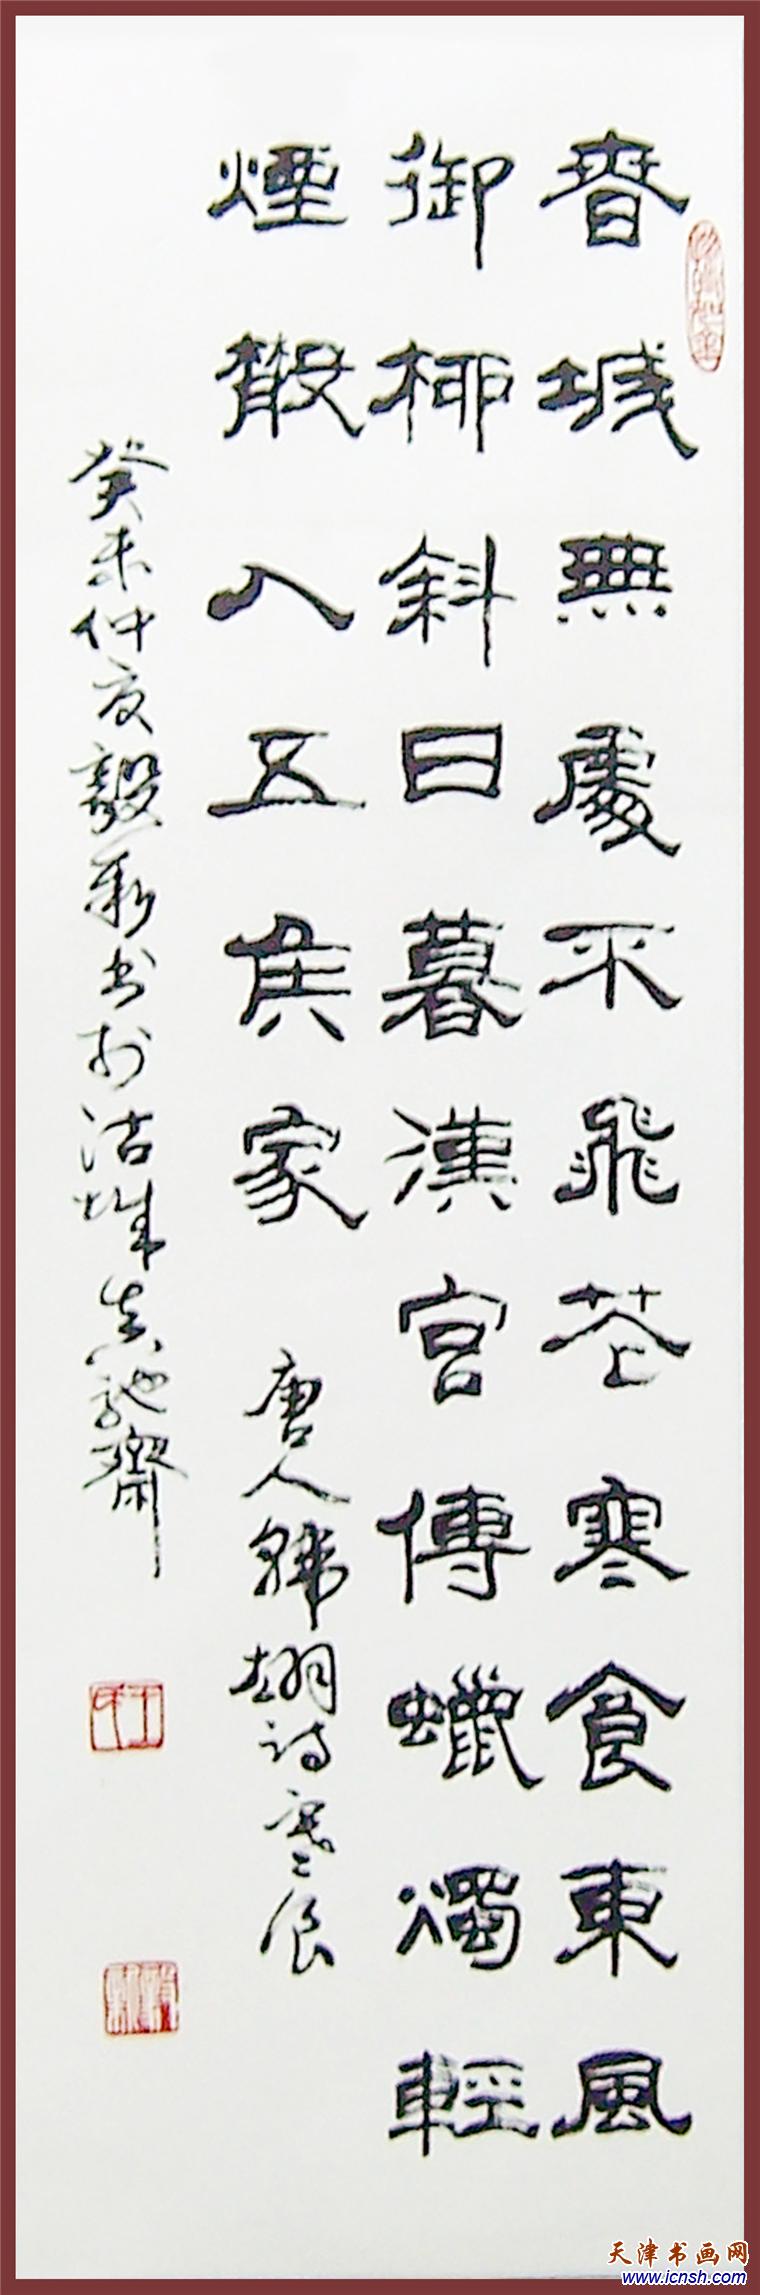 春城無處不飛花寒食東風
御柳斜日暮漢宮傳蠟燭輕
煙散入五侯家 唐人韓翃詩寒食
癸未仲夏毅新書於沽城齋
王氏
天津书画网
www.icnsh.com